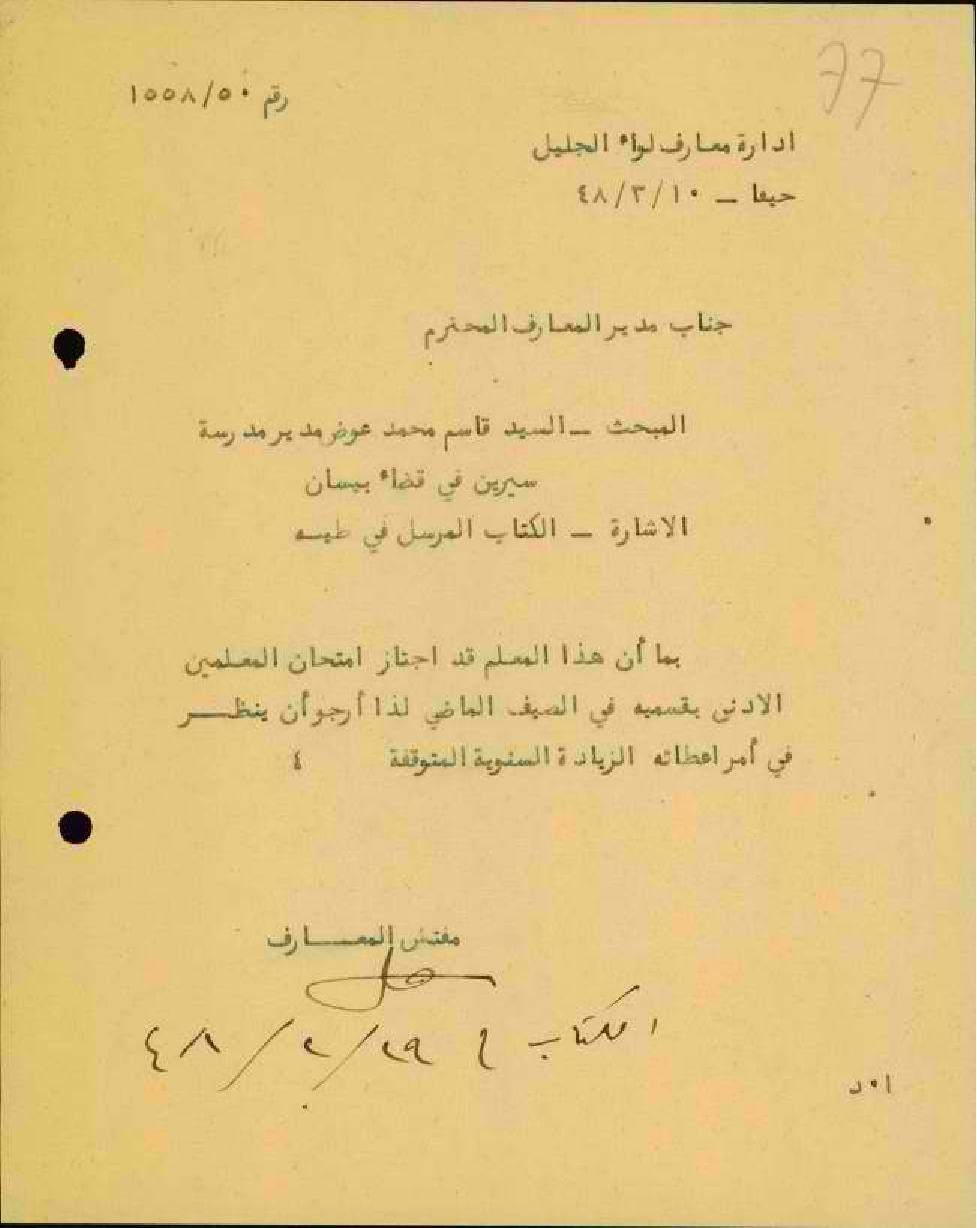 77
رقم ١٥٥٨/٥٠
ادارة معارف لواء الجليل
حيفا – ٤٨/٣/١٠
جناب مدير المعارف المحترم
المبحث – السيد قاسم محمد عوض مدير مدرسة
سيرين في قضاء بيسان
الاشارة – الكتاب المرسل في طيـه
بما أن هذا المعلم قد اجتاز امتحان المعلمين
الادنى بقسميه في الصيف الماضي لذا أرجو أن ينظـــر
في أمر اعطائه الزيادة السنوية المتوقفة ٤
مفتش المعـــارف
الكتاب ٢٩/٢/٤٨
ا٠د